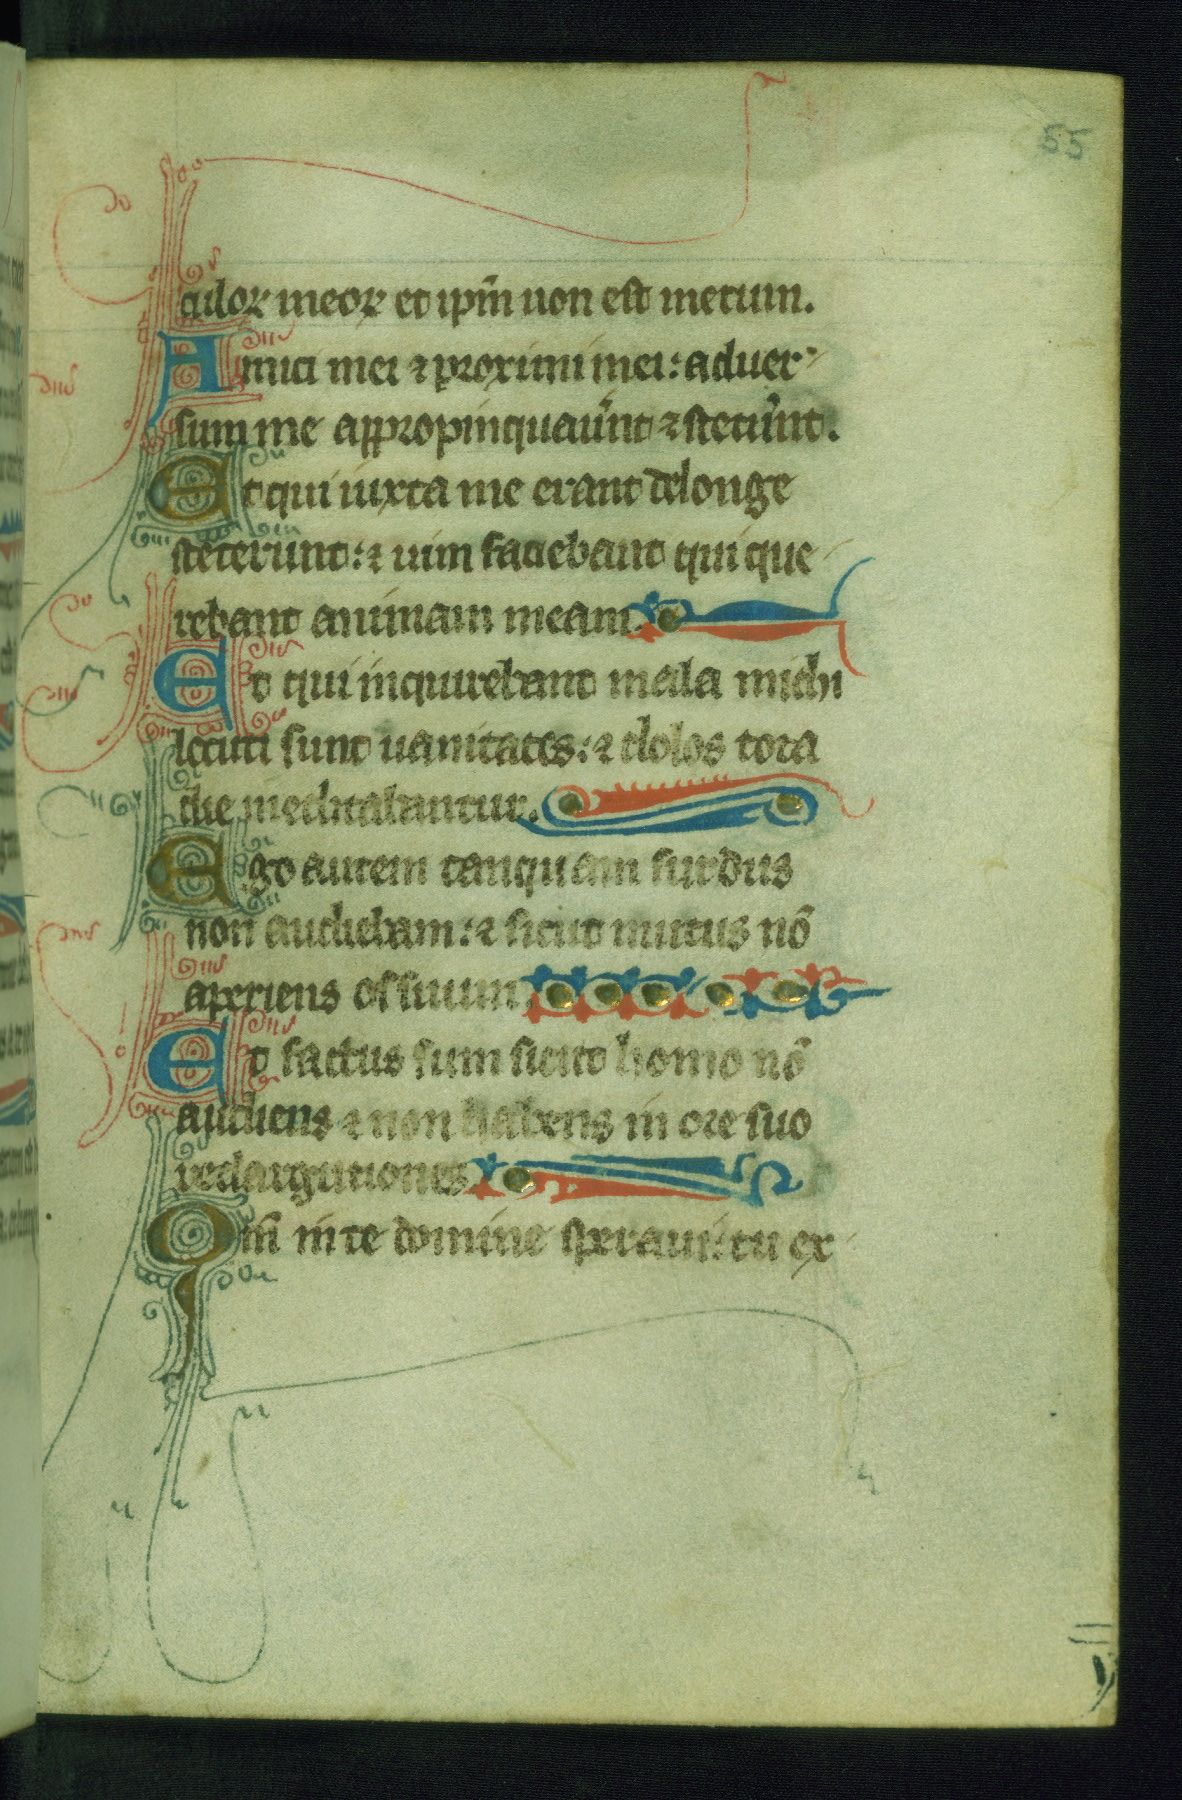 55
culoꝝ meoꝝ et ip̄m non est mecum.
Amici mei ⁊ proximi mei: aduer-
sum me appropinquauer̄t ⁊ steter̄t.
Et qui iuxta me erant de longe
steterunt: ⁊ uim faciebant qui que-
rebant animam meam.
Et qui inquirebant mala michi
locuti sunt uanitates: ⁊ dolos tota
die meditabantur.
Ego autem tanquam surdus
non audiebam: ⁊ sicut mutus nō
aperiens os suum.
Et factus sum sicut homo nō
audiens ⁊ non habens in ore suo
redargutiones
Qm̄ in te domine speraui: tu ex-